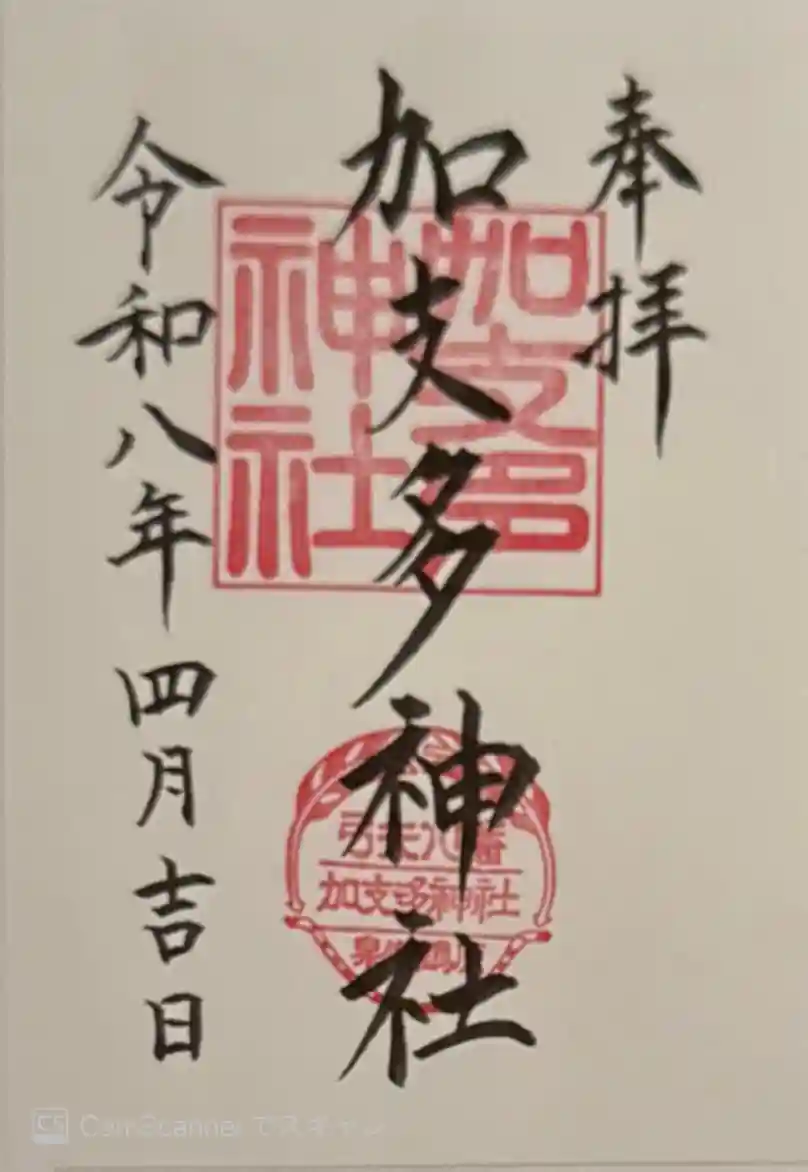 奉拝
加支多神社
令和八年四月吉日
加支多
神社
弓矢八幡
加支多神社
CS CamScanner でスキャン